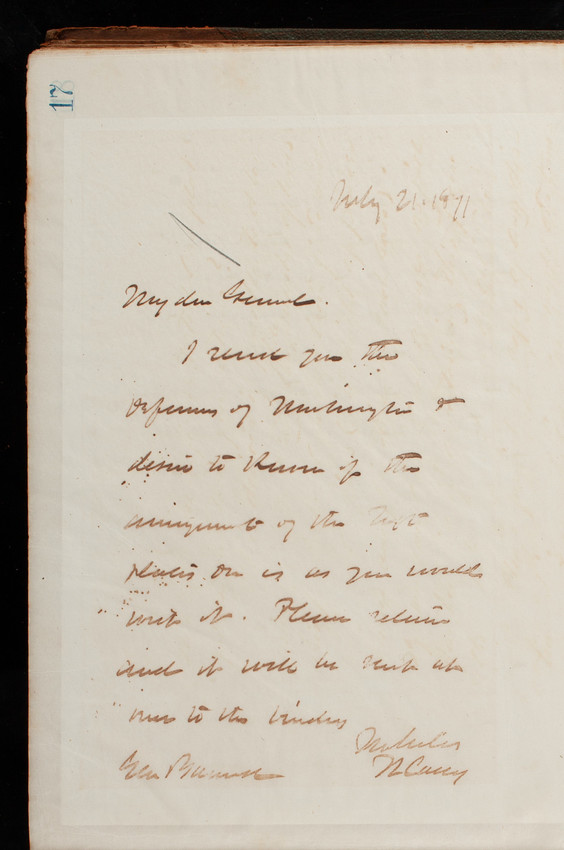 17
July 21. 1871
My dear General.
I send you the
Defenses of Washington &
desire to know if the
arrangement of the
plates &c is as you would
wish it. Please return
and it will be sent at
once to the binders
Gen Barnard
T L Casey